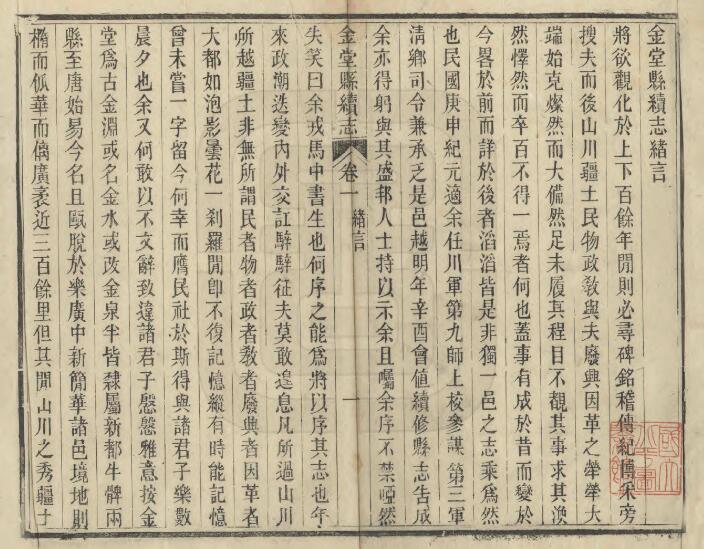 金堂縣續志緒言
將欲觀化於上下百餘年閒則必尋碑銘稽傳紀博采旁
搜夫而後山川疆土民物政敎與夫廢興因革之犖犖大
端始克燦然而大備然足未履其程目不覩其事求其渙
然懌然而卒百不得一焉者何也蓋事有成於昔而變於
今畧於前而詳於後者滔滔皆是非獨一邑之志乘爲然
也民國庚申紀元適余任川軍第九師上校參謀第三軍
淸鄉司令兼承乏是邑越明年辛酉會値續修縣志吿成
余亦得躬與其盛邦人士持以示余且囑余序不禁啞然
金堂縣續志 卷一 緒言 一
失笑曰余戎馬中書生也何序之能爲將以序其志也年
來政潮迭變內外交訌騂騂征夫莫敢遑息凡所過山川
所越疆土非無所謂民者物者政者敎者廢興者因革者
大都如泡影曇花一刹羅閒卽不復記憶縱有時能記憶
曾未嘗一字留今何幸而膺民社於斯得與諸君子樂數
晨夕也余又何敢以不文辭致違諸君子慇慇雅意按金
堂爲古金淵或名金水或改金泉半皆隸屬新都牛鞞兩
縣至唐始易今名且甌脫於樂廣中新簡華諸邑境地則
橢而佤華而偊廣袤近三百餘里但其閒山川之秀疆土